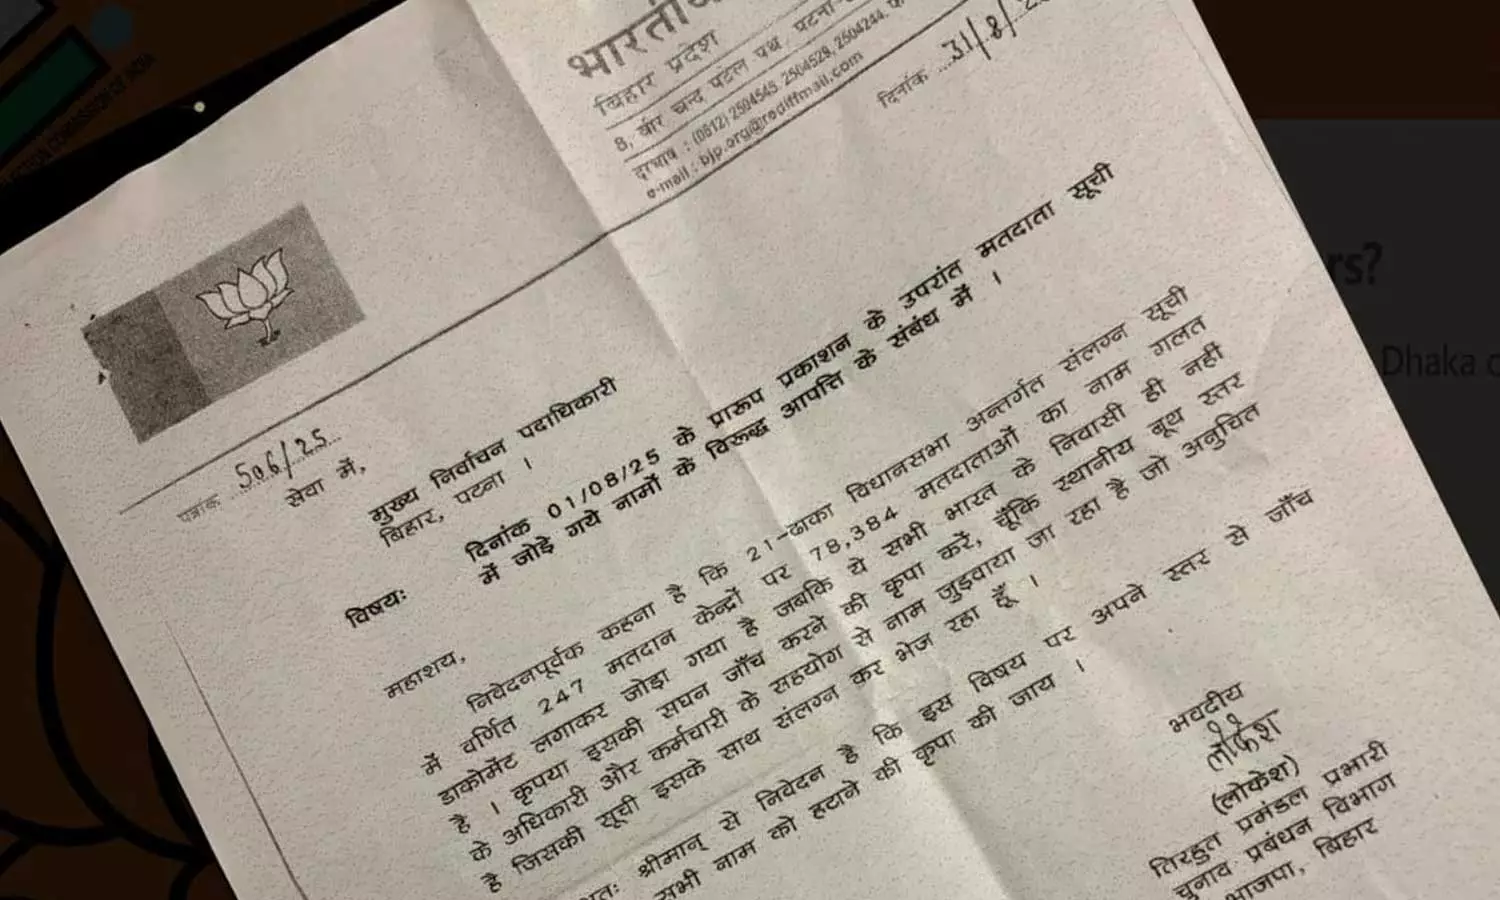 बिहार प्रदेश
8, वीर चन्द पटेल पथ, पटना-
दूरभाष : (0612) 2504545, 2504529, 2504244,
e-mail : bjp.org@rediffmail.com
दिनांक ...31/8/
पत्रांक ...506/25...
सेवा में,
मुख्य निर्वाचन पदाधिकारी
बिहार, पटना ।
विषयः दिनांक 01/08/25 के प्रारूप प्रकाशन के उपरांत मतदाता सूची
में जोड़े गये नामों के विरूद्ध आपत्ति के संबंध में ।
महाशय,
निवेदनपूर्वक कहना है कि 21-ढाका विधानसभा अन्तर्गत संलग्न सूची
में वर्णित 247 मतदान केन्द्रों पर 78,384 मतदाताओं का नाम गलत
डाकोमेंट लगाकर जोड़ा गया है जबकि ये सभी भारत के निवासी ही नहीं
है । कृपया इसकी सघन जाँच करने की कृपा करें, चूँकि स्थानीय बूथ स्तर
के अधिकारी और कर्मचारी के सहयोग से नाम जुड़वाया जा रहा है जो अनुचित
है जिसकी सूची इसके साथ संलग्न कर भेज रहा हूँ ।
श्रीमान् से निवेदन है कि इस विषय पर अपने स्तर से जाँच
सभी नाम को हटाने की कृपा की जाय ।
भवदीय
लोकेश
(लोकेश)
तिरहुत प्रमंडल प्रभारी
चुनाव प्रबंधन विभाग
भाजपा, बिहार
rs?
Dhaka